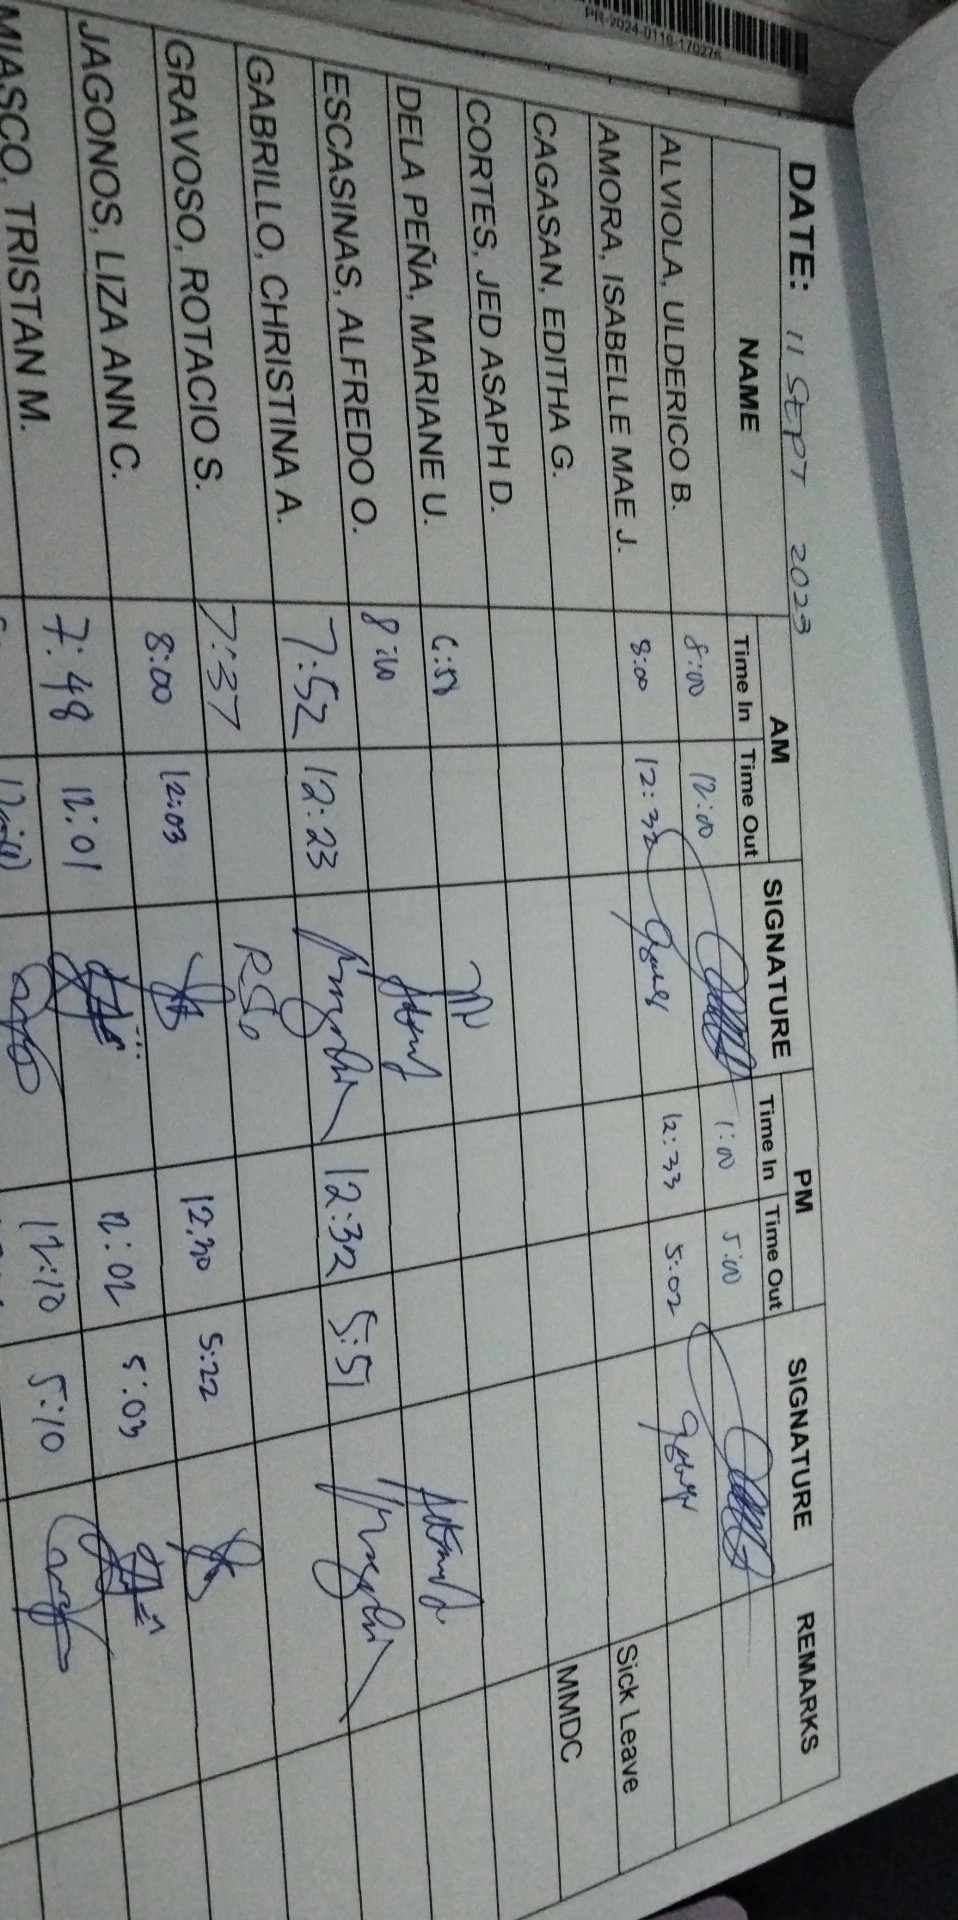 PR-2024-0116-170276
DATE: 11 SEPT 2023
NAME AM SIGNATURE PM SIGNATURE REMARKS
Time In Time Out Time In Time Out
ALVIOLA, ULDERICO B. 8:00 12:00 1:00 5:00
AMORA, ISABELLE MAE J. 8:00 12:32 12:33 5:02
CAGASAN, EDITHA G. Sick Leave
CORTES, JED ASAPH D. MMDC
DELA PEÑA, MARIANE U. 6:58
ESCASINAS, ALFREDO O. 8:00
GABRILLO, CHRISTINA A. 7:52 12:23 12:32 5:51
GRAVOSO, ROTACIO S. 7:37 RSG
JAGONOS, LIZA ANN C. 8:00 12:03 12:30 5:22
MIASCO, TRISTAN M. 7:48 12:01 12:02 5:03
12:10 5:10